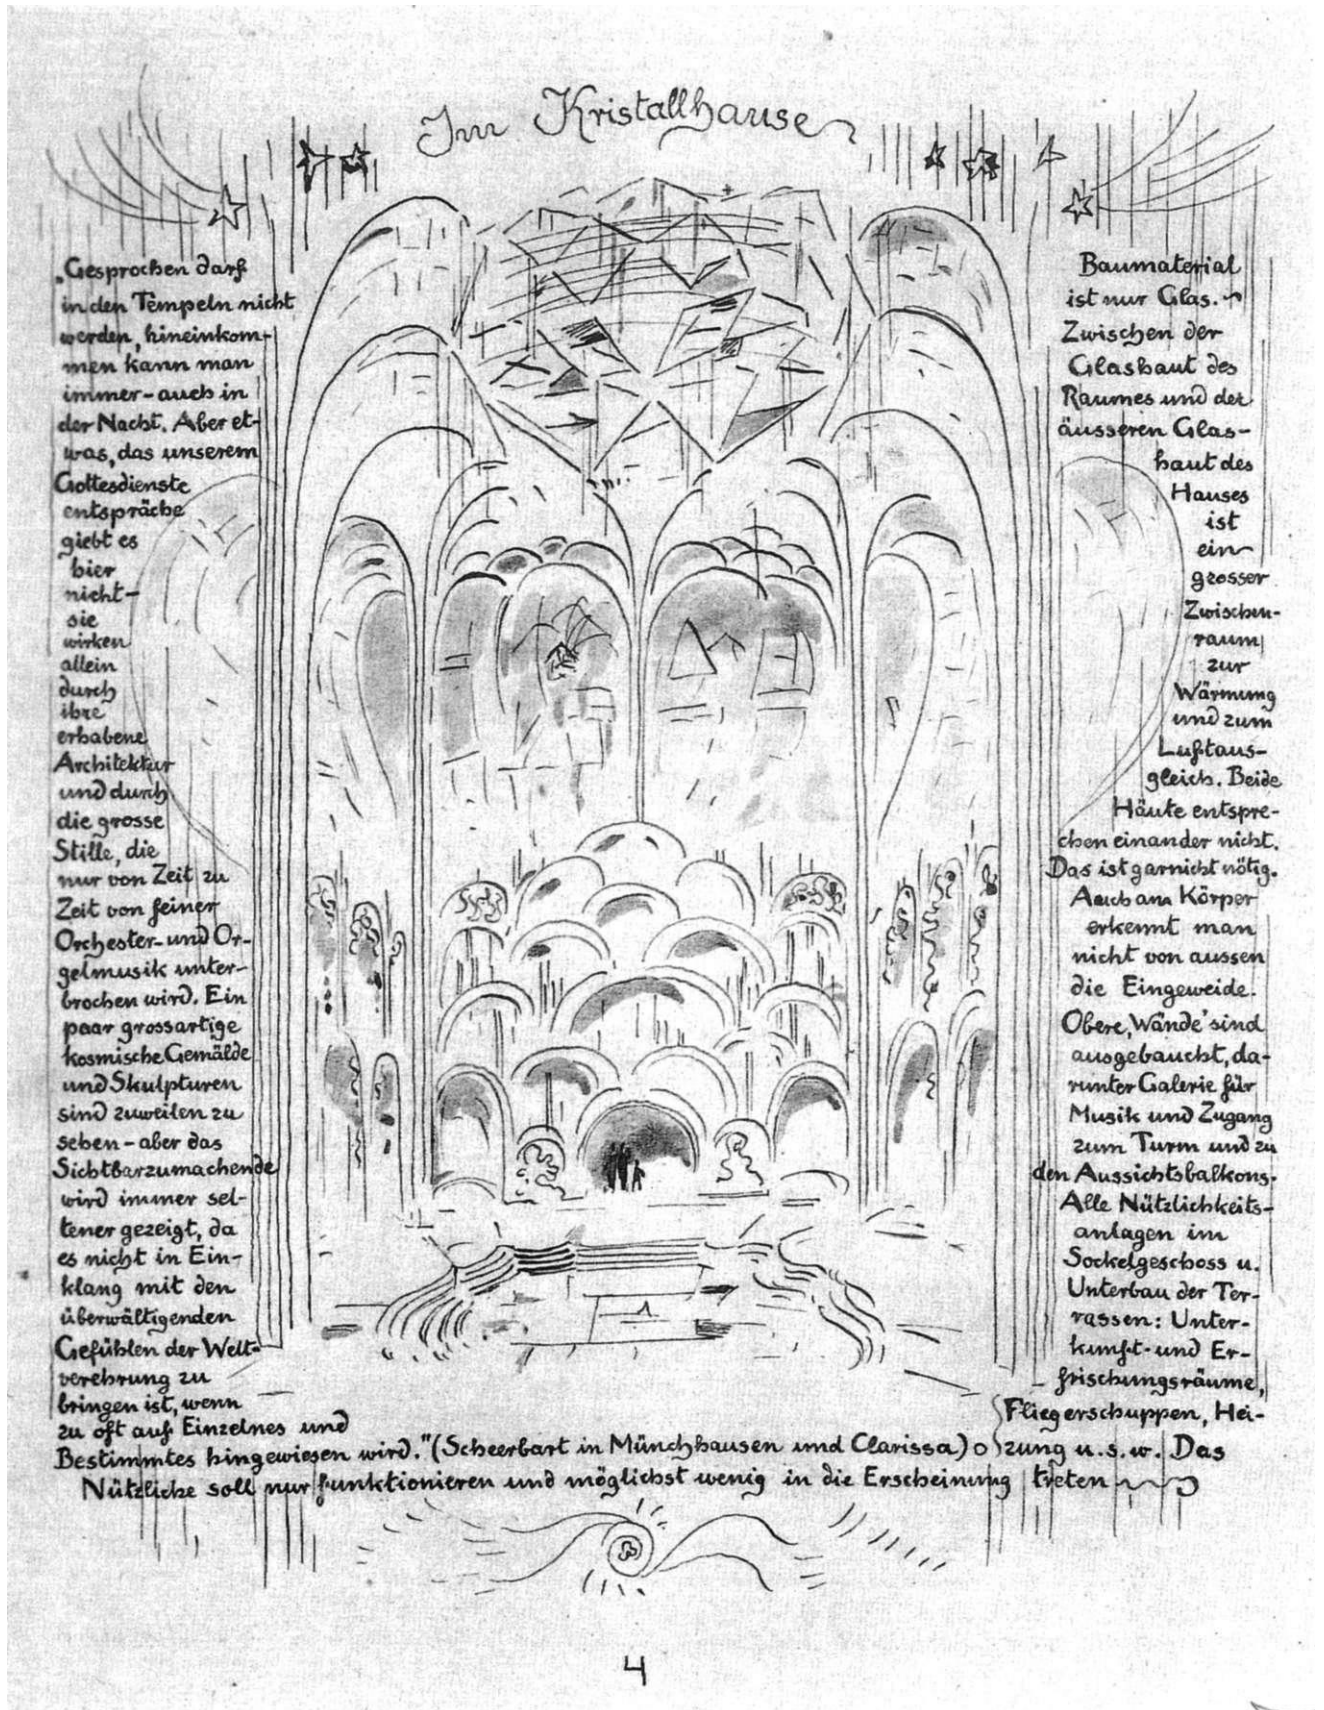 Im Kristallhause
„Gesprochen darf
in den Tempeln nicht
werden, hineinkom-
men kann man
immer – auch in
der Nacht. Aber et-
was, das unserem
Gottesdienste
entspräche
giebt es
hier
nicht –
sie
wirken
allein
durch
ihre
erhabene
Architektur
und durch
die grosse
Stille, die
nur von Zeit zu
Zeit von feiner
Orchester- und Or-
gelmusik unter-
brochen wird. Ein
paar grossartige
kosmische Gemälde
und Skulpturen
sind zuweilen zu
sehen – aber das
Sichtbarzumachende
wird immer sel-
tener gezeigt, da
es nicht in Ein-
klang mit den
überwältigenden
Gefühlen der Welt-
verehrung zu
bringen ist, wenn
zu oft auf Einzelnes und
Bestimmtes hingewiesen wird." (Scheerbart in Münchhausen und Clarissa)
Baumaterial
ist nur Glas. –
Zwischen der
Glashaut des
Raumes und der
äusseren Glas-
haut des
Hauses
ist
ein
grosser
Zwischen-
raum
zur
Wärmung
und zum
Luftaus-
gleich. Beide
Häute entspre-
chen einander nicht.
Das ist garnicht nötig.
Auch am Körper
erkennt man
nicht von aussen
die Eingeweide.
Obere ‚Wände' sind
ausgebaucht, da-
runter Galerie für
Musik und Zugang
zum Turm und zu
den Aussichtsbalkons.
Alle Nützlichkeits-
anlagen im
Sockelgeschoss u.
Unterbau der Ter-
rassen: Unter-
kunft- und Er-
frischungsräume,
Fliegerschuppen, Hei-
zung u.s.w. Das
Nützliche soll nur funktionieren und möglichst wenig in die Erscheinung treten
4